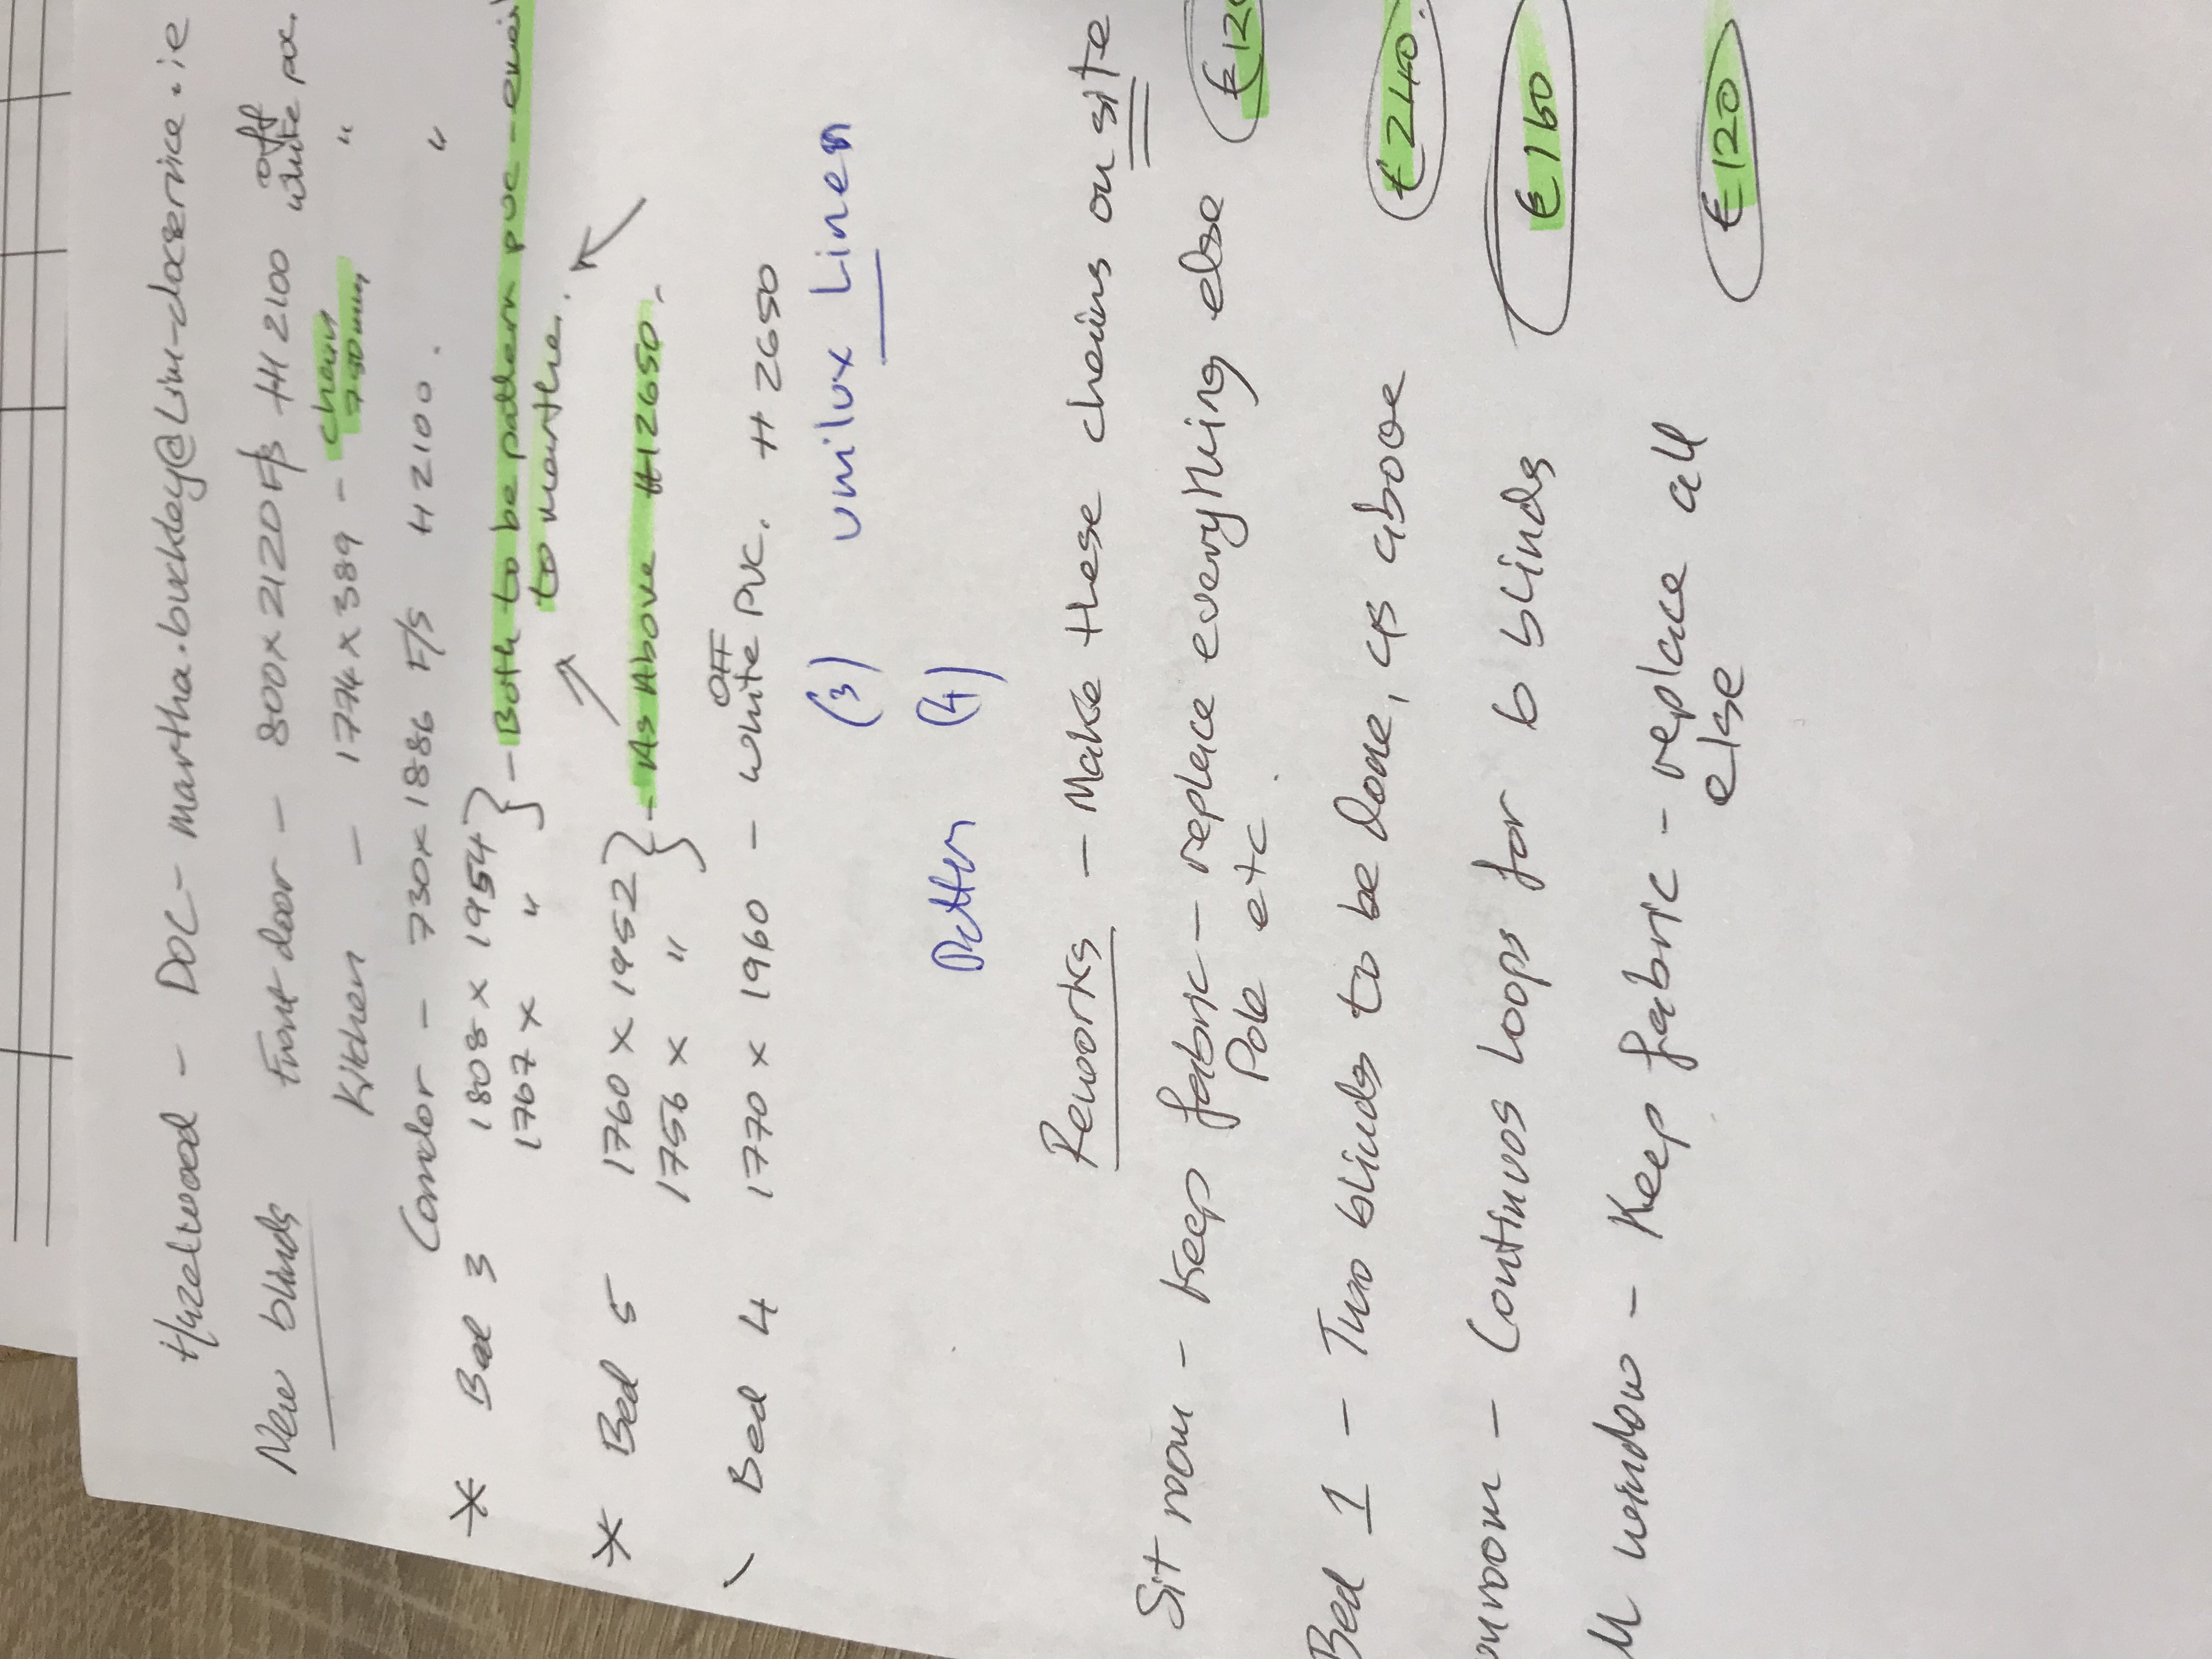 Hazelwood - DOC - martha.buckley@Lim-doCservice.ie
New blinds Front door - 800 x 2120 F/s H 2100 off white pvc.
Kitchen - 1774 x 389 - chain 750mm "
Corridor - 730 x 1886 F/s H 2100. "
* Bed 3 1808 x 1954 } - Both to be pattern pvc - email
1767 x " to martha.
* Bed 5 1760 x 1952 } - As Above H 2650.
1756 x "
Bed 4 1770 x 1960 - OFF white PVC. H 2650
(3) Unilux Linen
(4)
Reworks - Make these chains on site
Sit room - Keep fabric - replace everything else €120
Pole etc.
Bed 1 - Two blinds to be done, as above €240.
unroom - Continuos Loops for 6 blinds €150
ll window - Keep fabric - replace all €120
else